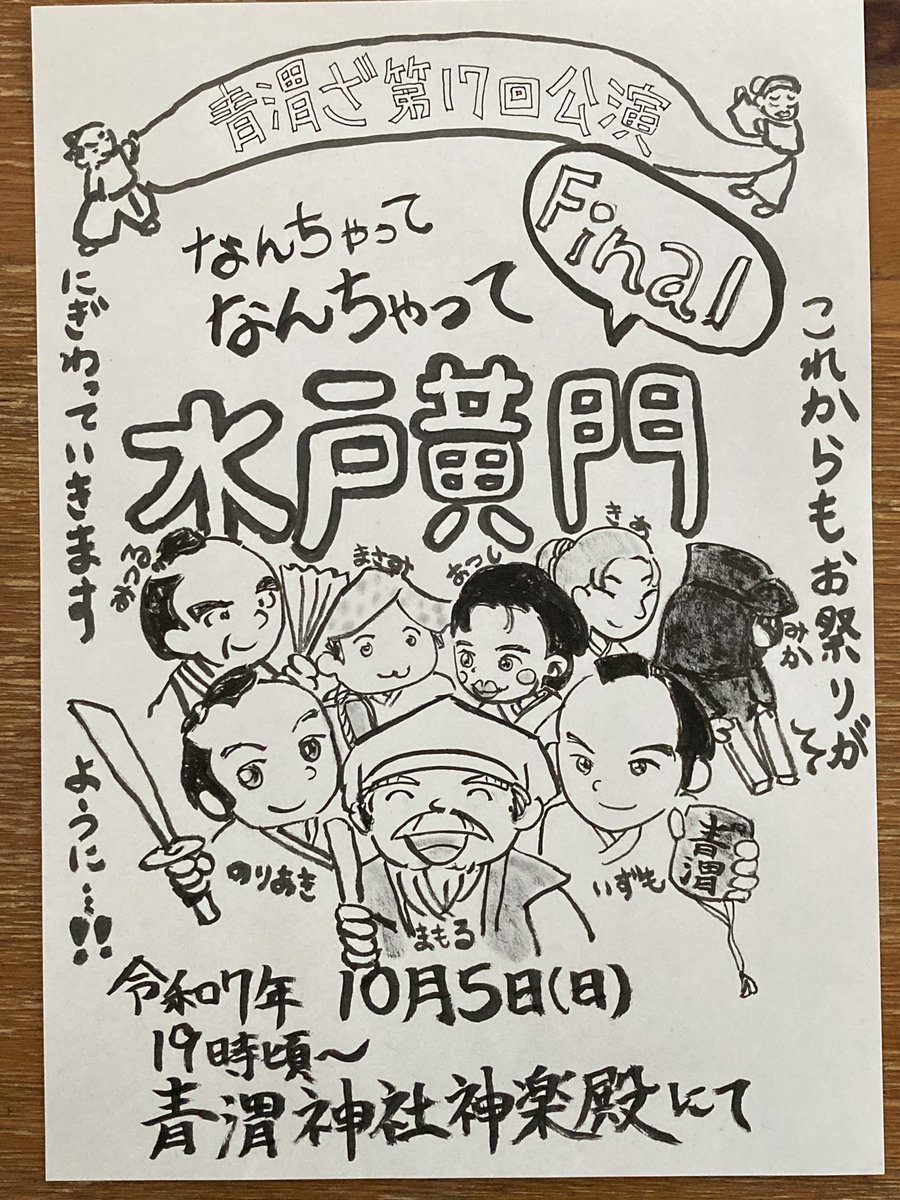 青渭ざ第17回公演
Final
なんちゃって
なんちゃって
水戸黄門
これからもお祭りが
にぎわっていきます
ように…!!
まさみ
おつし
きぬ
みか
のりあき
まもる
いずも
青渭
令和7年 10月5日(日)
19時頃〜
青渭神社神楽殿にて